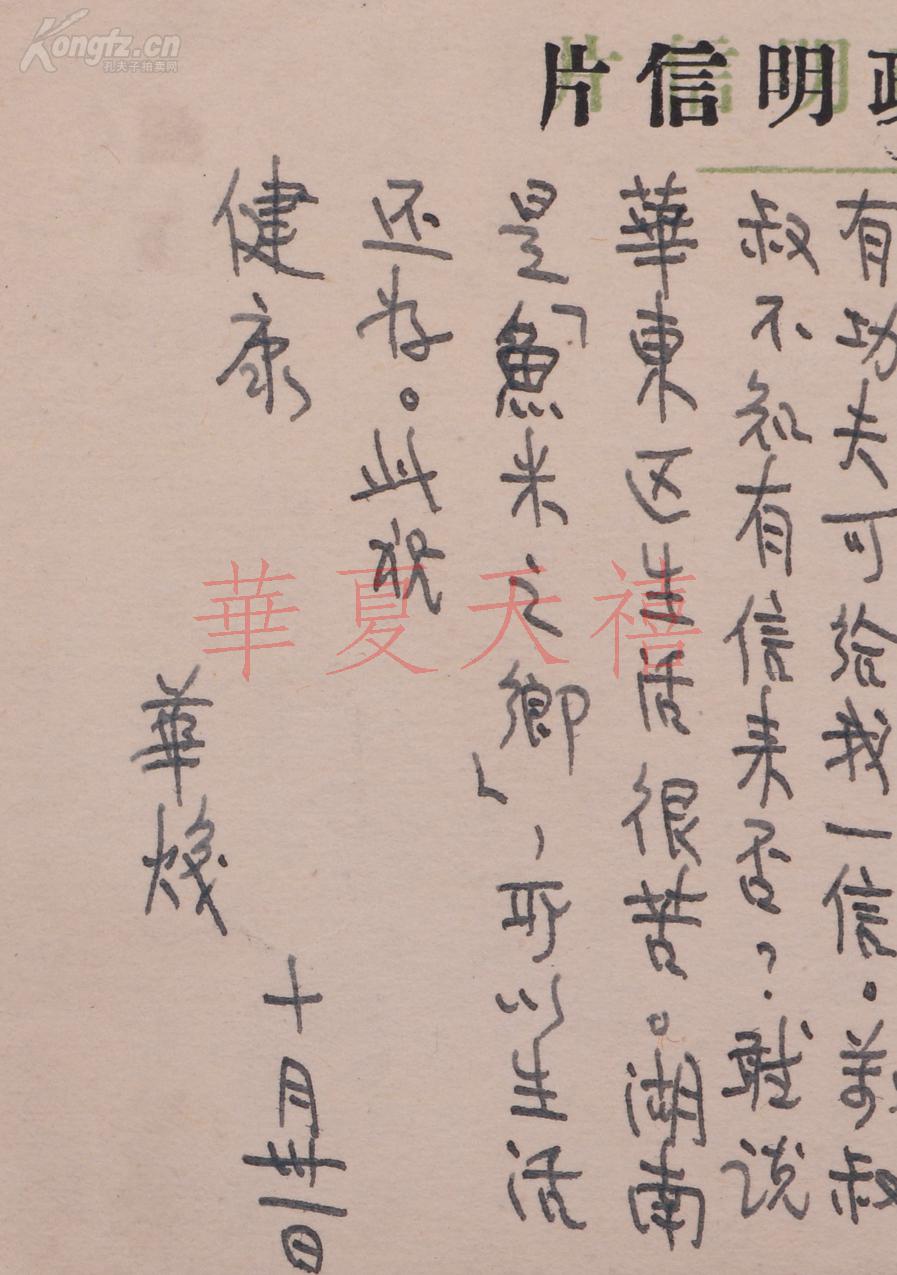 明信片
有功夫可给我一信。叔
叔不知有信来否?说
華東区生活很苦。湖南
是「魚米之鄉」,所以生活
还好。此祝
健康
華
十月卅一日
華夏天禧
Kongfz.cn
孔夫子拍卖网